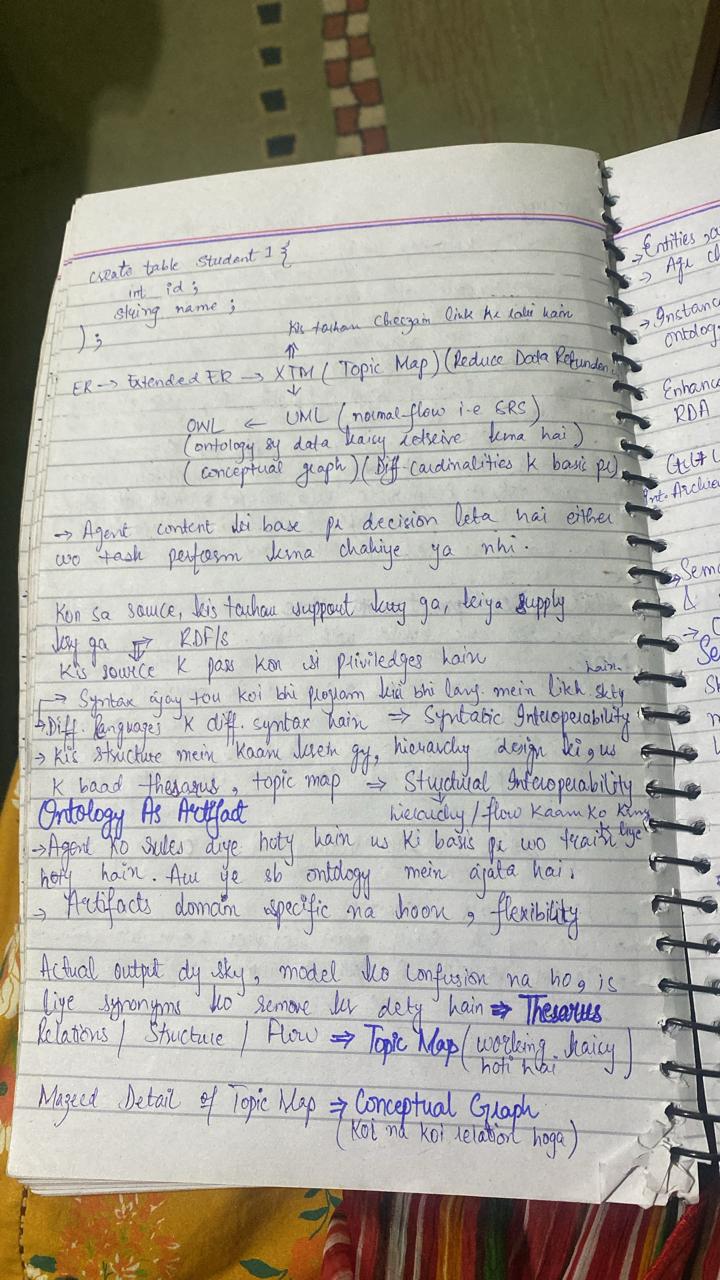 create table Student 1 {
int id ;
string name ;
) ;
Kis tarhan cheezain link ho rahi hain
ER → Extended ER → XTM ( Topic Map ) (Reduce Data Redundan
OWL ← UML ( normal-flow i.e SRS)
(ontology sy data kaisy retreive krna hai )
( conceptual graph ) ( Diff. cardinalities k basis pr)
→ Agent content ki base pr decision leta hai either
wo task perform krna chahiye ya nhi .
Kon sa source, kis tarhan support kry ga, kiya supply
kry ga ⇒ RDF/s
Kis source k pass kon si priviledges hain
hain.
→ Syntax ajay tou koi bhi program kisi bhi lang. mein likh skty
→ Diff. languages k diff. syntax hain ⇒ Syntatic Interoperability
→ Kis structure mein kaam krein gy, hierarchy design ki, us
k baad thesarus , topic map ⇒ Structural Interoperability
Ontology As Artifact hierachy / flow kaam ko krny
k liye
→ Agent ko rules diye hoty hain us ki basis pr wo train
hoty hain. Aur ye sb ontology mein ajata hai .
→ Artifacts domain specific na hoon , flexibility
Actual output dy sky, model ko confusion na ho, is
liye synonyms ko remove kr dety hain ⇒ Thesarus
Relations / Structure / Flow ⇒ Topic Map ( working kaisy
hoti hai. )
Mazeed Detail of Topic Map ⇒ Conceptual Graph
(koi na koi relation hoga)
→ Entities
→ Age
→ Instanc
ontolog
Enhance
RDA
Int. Archie
→ Sema
&
Se